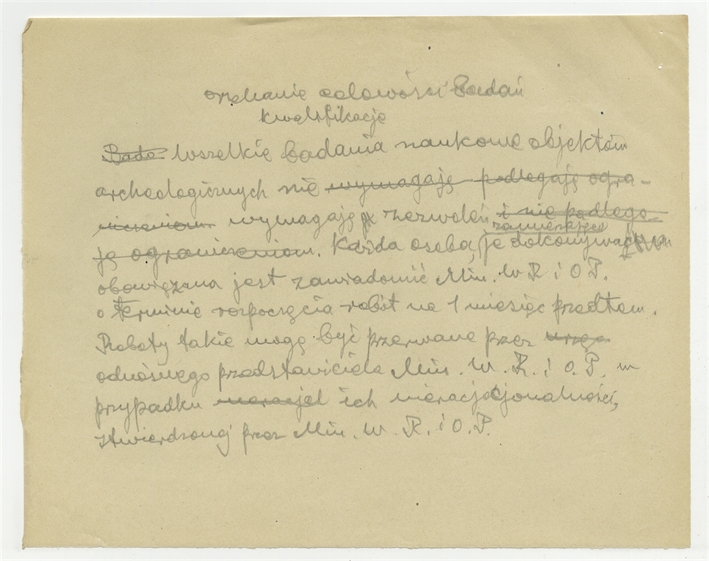 orzekanie celowości badań
kwalifikacje
Bada Wszelkie badania naukowe objektów
archeologicznych nie wymagają podlegają ogra-
niczeniom wymagają zezwoleń i nie podlega-
zamierzająca
ją ograniczeniom. Każda osoba, je dokonywać
obowiązana jest zawiadomić Min. W. R. i O. P.
o terminie rozpoczęcia robót na 1 miesiąc przedtem.
Roboty takie mogą być przerwane przez urzęd
odnośnego przedstawiciela Min. W. R. i O. P. w
przypadku nieracjel ich nieracjonalności,
stwierdzonej przez Min. W. R. i O. P.